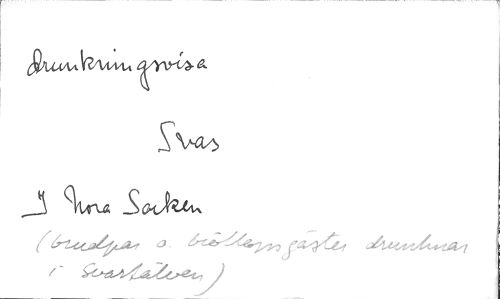 drunkningsvisa
Svas
I Nora Socken
(brudpar o. bröllopsgäster drunknar
i Svartälven)